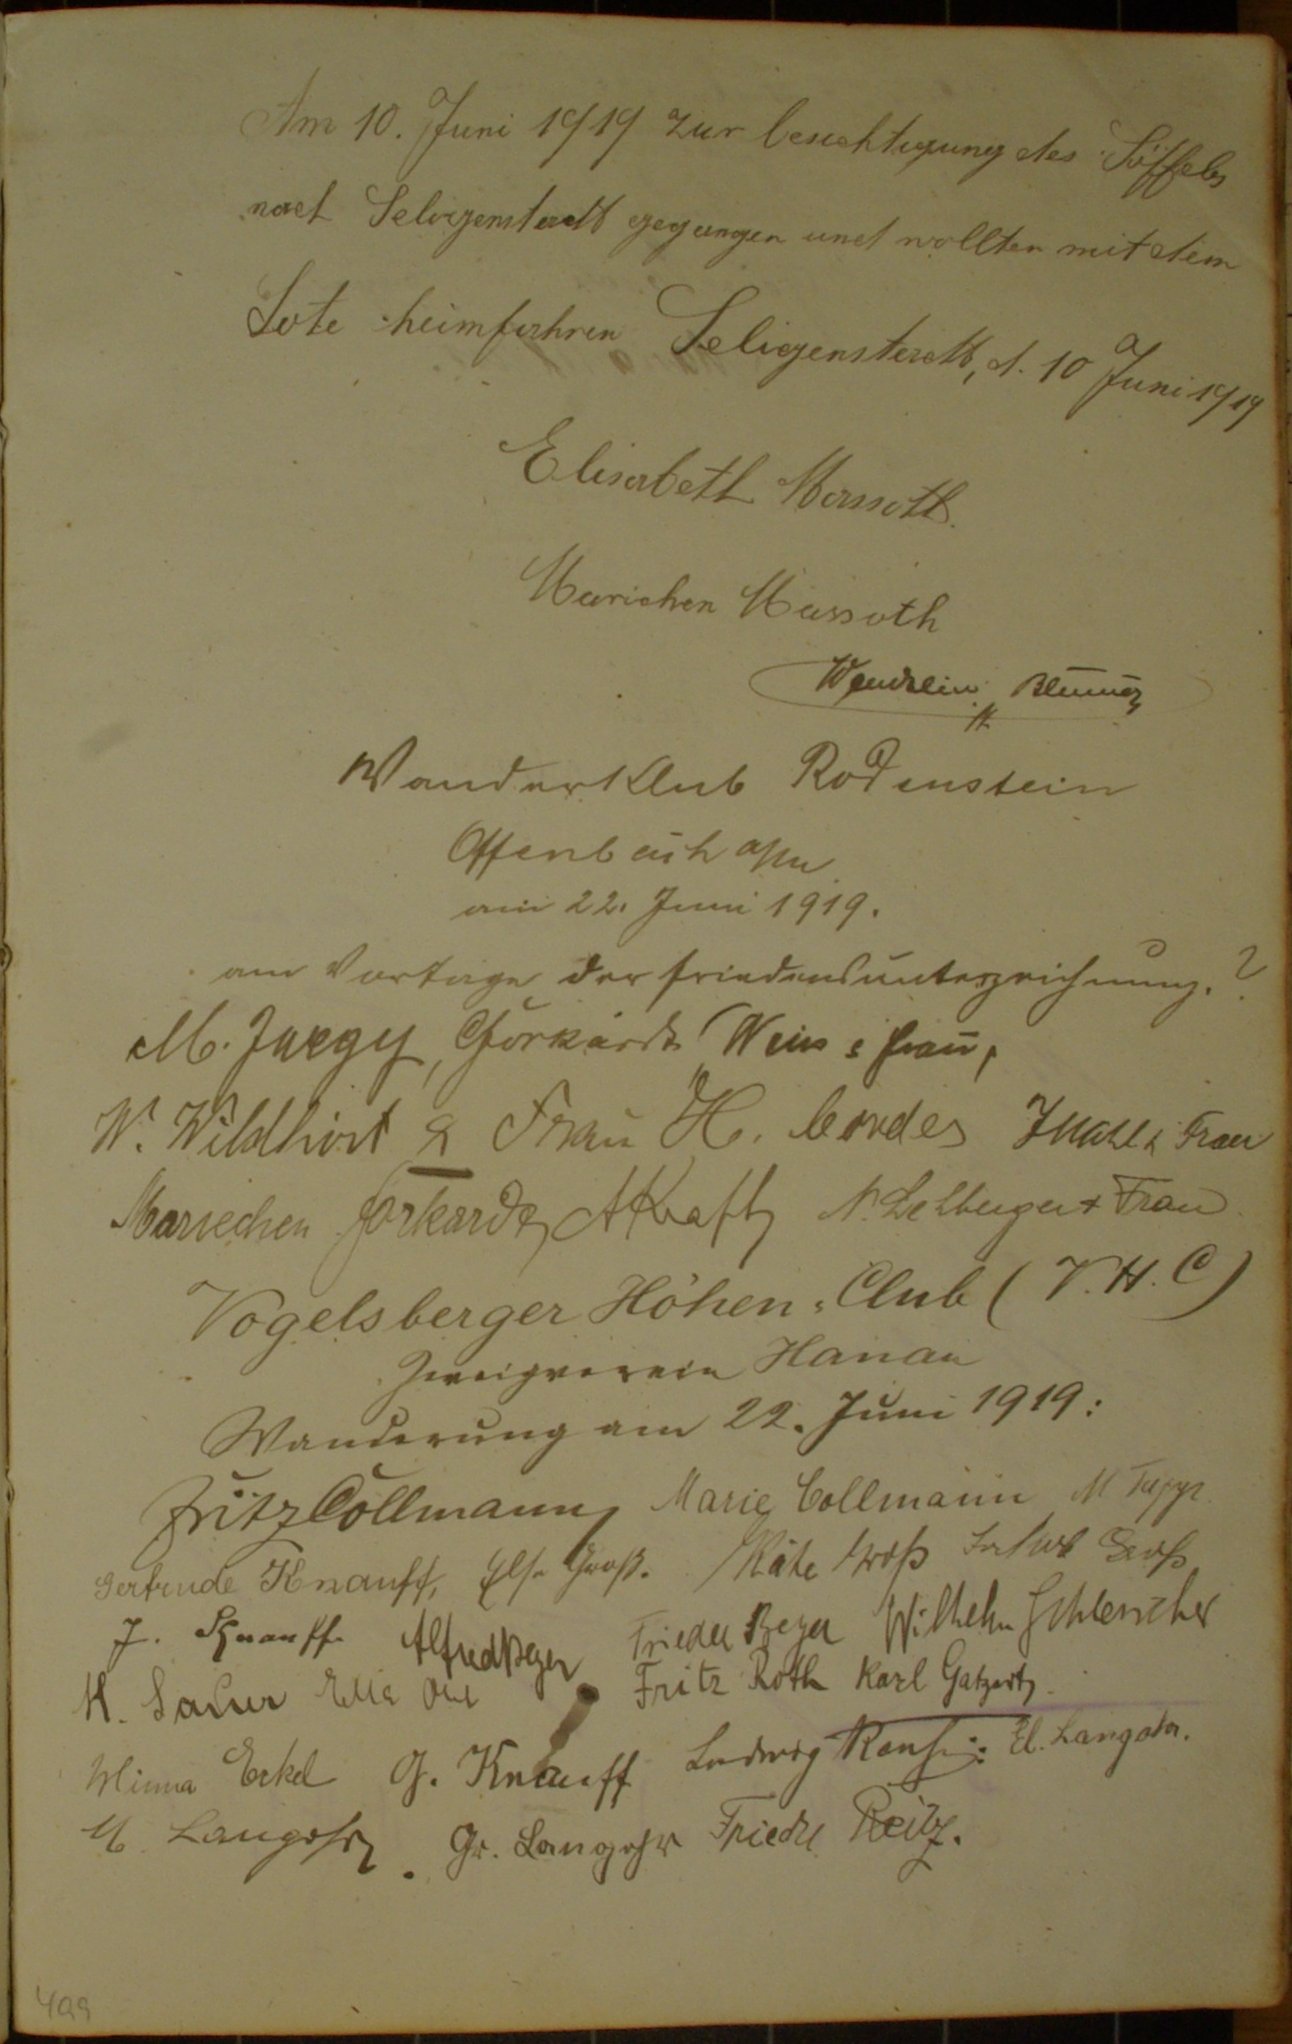 Am 10. Juni 1919 zur besuchtigung des Löffels
nach Seligenstadt gegangen und wollten mit dem
Lote heimfahren Seligenstadt, d. 10 Juni 1919
Elisabeth Massoth.
Mariechen Massoth
Wendelin
Wanderklub Rodenstein
Offenbach a/M
am 22. Juni 1919.
am Vortage der Friedensunterzeichnung. ?
M. Jaegy, Weis & Frau,
W. Wildhirt & Frau H. Cordes & Frau
Mariechen Forkardt, A Kraft, & Frau
Vogelsberger Höhen-Club (V. H. C)
Zweigverein Hanau
Wanderung am 22. Juni 1919:
Fritz Collmann, Marie Collmann M
Gertrude Knauff, Else Groß. Käte Groß Groß
J. Knauff Alfred Beyer Frieda Beyer Wilhelm
K. Fritz Roth Karl Gatzert,
Minna Erkel G. Knauff Ludwig El. Langohr.
M. Langohr, Gr. Langohr Friedel Reitz.
499